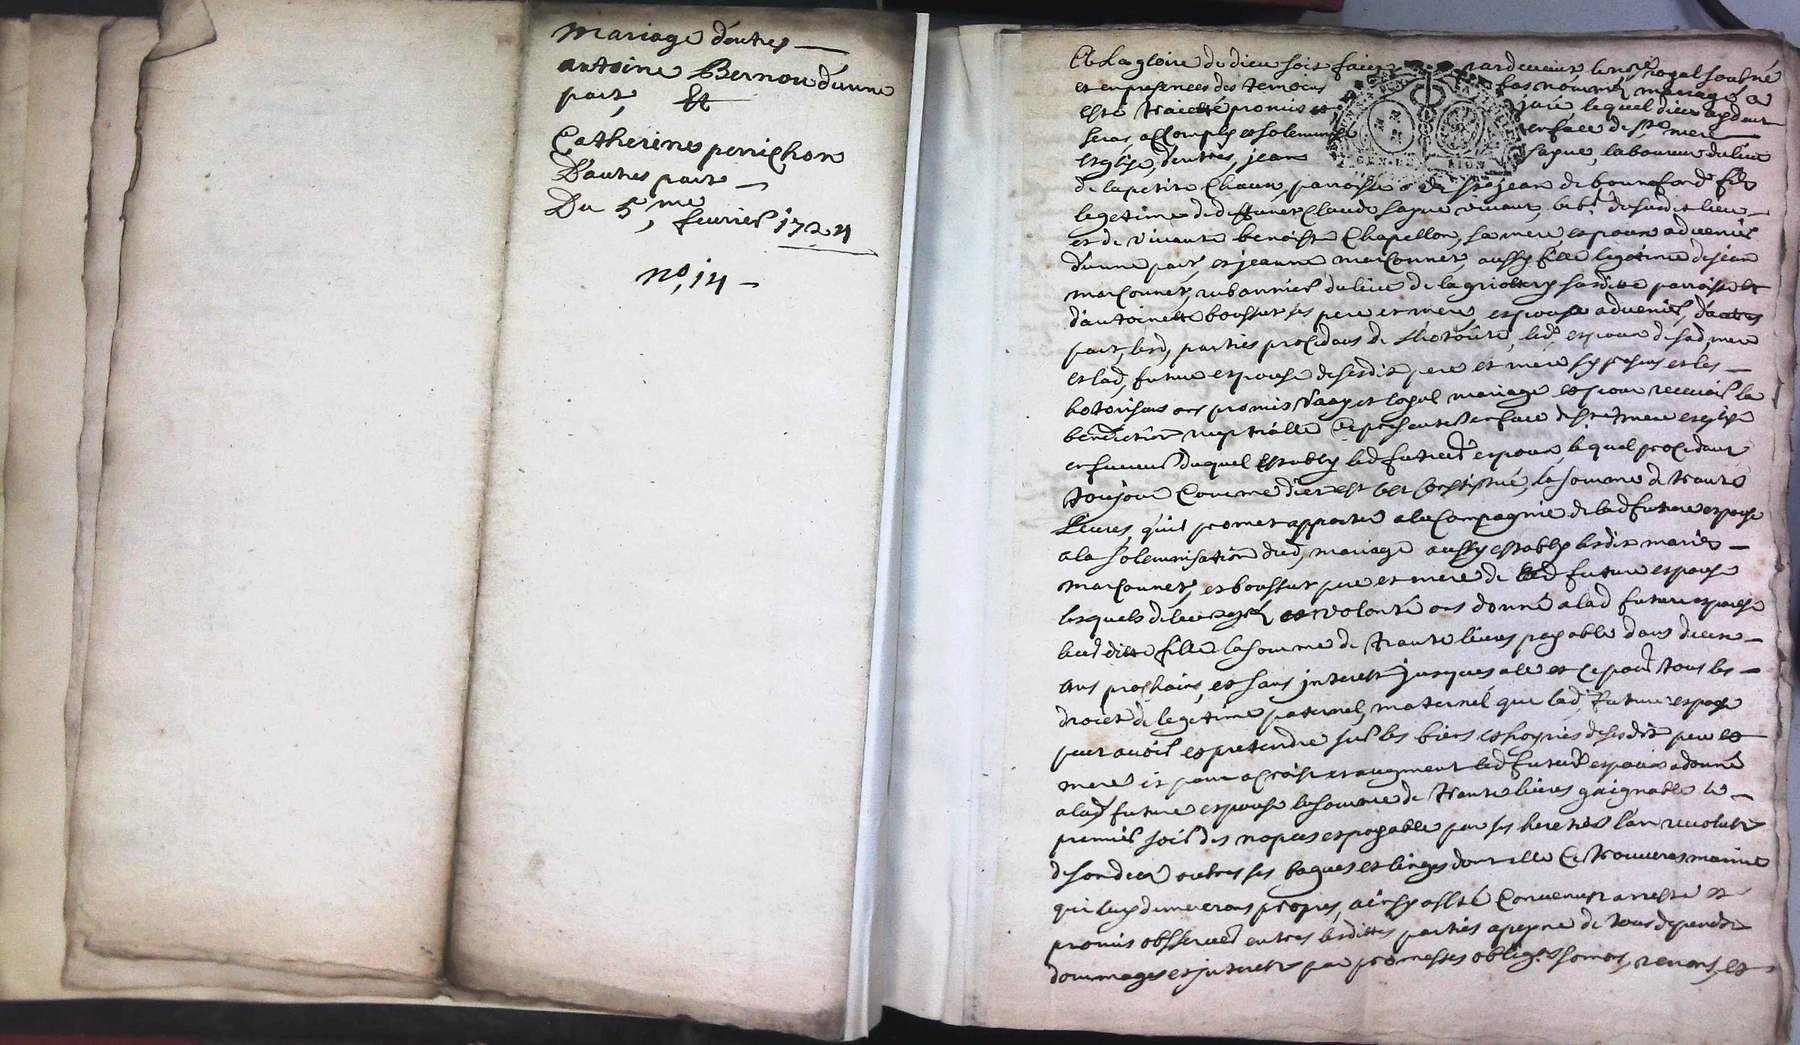 Mariage d'entre
antoine Bernou d'une
part, Et
Catherine perrichon
D'autre part
Du 5me fevrier 1724
no, 14
A La gloire de dieu soit faict pardevant le nore royal soubné
et en presences des temoins bas nommés mariage a
esté traicté promis et juré lequel dieu aydant
sera accomply et solemnisé en face de ste mere
esglise, d'entre, jean sapue, laboureur du lieu
de la petite Chaux, parroisse de St jean de bonnefond fils
legetime de deffunct Claude sapue vivant, du susdit lieu
et de vivante benoiste Chapellon, sa mere espoux advenir
d'une part, et jeanne marconnet, aussy fille legetime de jean
marconnet, rubannier du lieu de la griottery susditte parroisse et
d'antoinette boussut ses pere et mere, espouse advenir, d'autre
part, lesd, parties procedans de l'hotorité, led, espoux de sad, mere
et lad, future espouse de sesdit pere et mere
hotorisans ont promis vray et loyal mariage et pour recevoir la
benediction nuptialle se presenter en face de ste mere esglise
en faveur duquel estably led futur espoux, lequel procedant
toujour comme dict est s'est constitué, la somme de trante
livres, qu'il promet apporter a la compagnie de lad future espouse
a la solemnisation dud, mariage aussy estably lesdit mariés
marconnet, et boussut pere et mere de lad future espouse
lesquels de leur gré et volonté ont donné a lad future espouse
leurditte fille la somme de trante livres payable dans deux
ans prochains, et sans jnterest jusques a lors et ce pour tous les
droict de legetime paternel, maternel que lad, future espouse
peut avoir et pretendre sur les biens et hoyries de sesdit pere et
mere et pour acroist et augment led futur espoux a donné
a lad future espouse la somme de trante livres gaignable le
premier soir des nopces et payable par ses heretiers l'an revolut
de son deces outre ses bagues et linges dont elle ce trouvera munie
qui luy demeureront propres, ainsy a esté convenu arresté et
promis observer entre lesdittes parties a peyne de tous depends
dommages et jnterets par promesses obliges soumis, renons, et